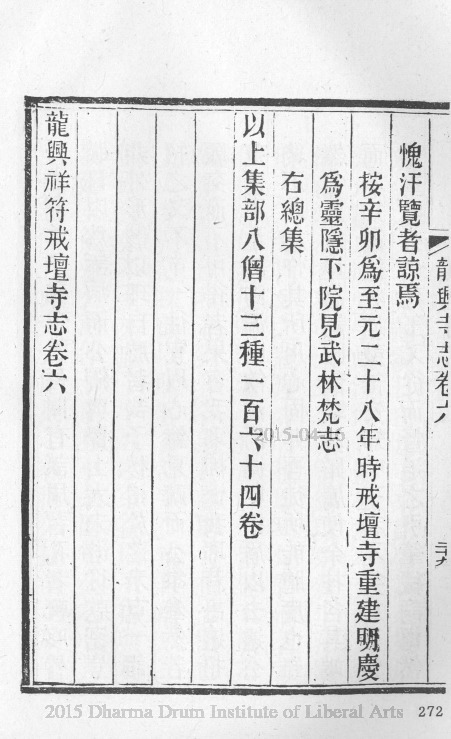 龍興寺志卷六
愧汗覽者諒焉
按辛卯爲至元二十八年時戒壇寺重建明慶
爲靈隱下院見武林梵志
右總集
以上集部八僧十三種一百
十四卷
龍興祥符戒壇寺志卷六
2015-04-16
2015 Dharma Drum Institute of Liberal Arts
272